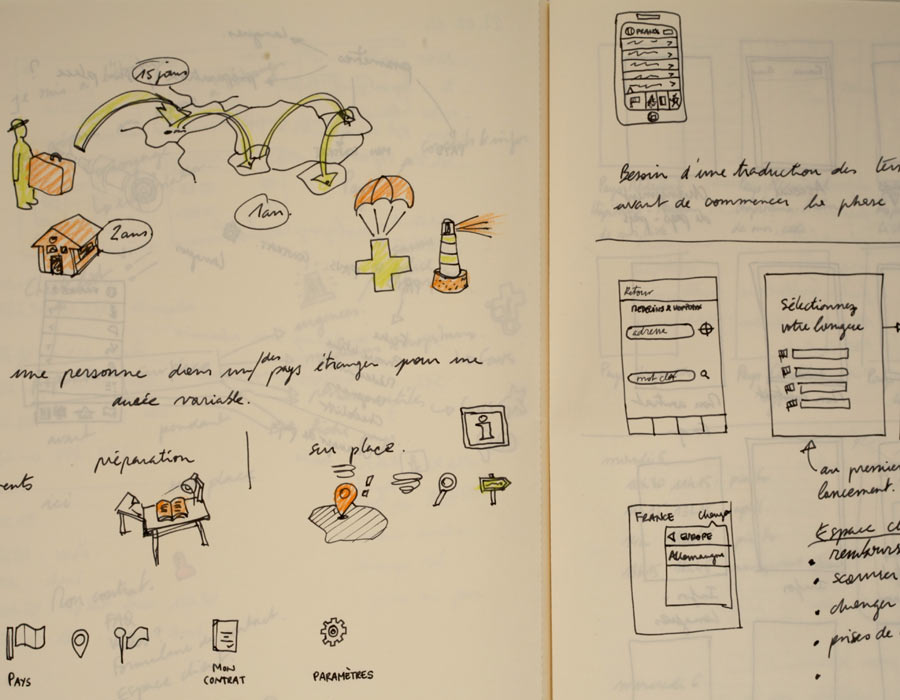 15 jours
1 an.
2 ans
une personne dans un/des pays étranger pour une
durée variable.
préparation
sur place.
i
PAYS
MON
CONTRAT
PARAMÈTRES
FRANCE
Besoin d'une traduction des
avant de commencer la phase
Retour
MEDECINS & HOPITAUX
adresse
mot clef
Sélectionnez
votre langue
au premier
lancement.
FRANCE change
EUROPE
Allemagne
Espace
scanner
changer
prises de